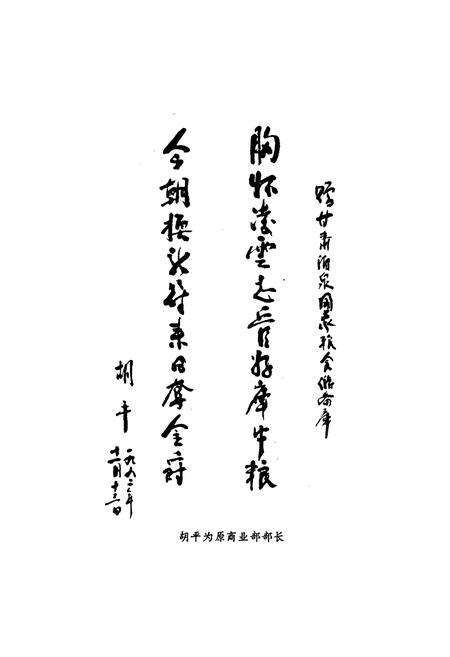 赠甘肃酒泉国家粮食储备库
胸怀凌雲志管好库中粮
今朝换新符来日夺金爵
胡平
一九九二年
十一月十三日
胡平为原商业部部长